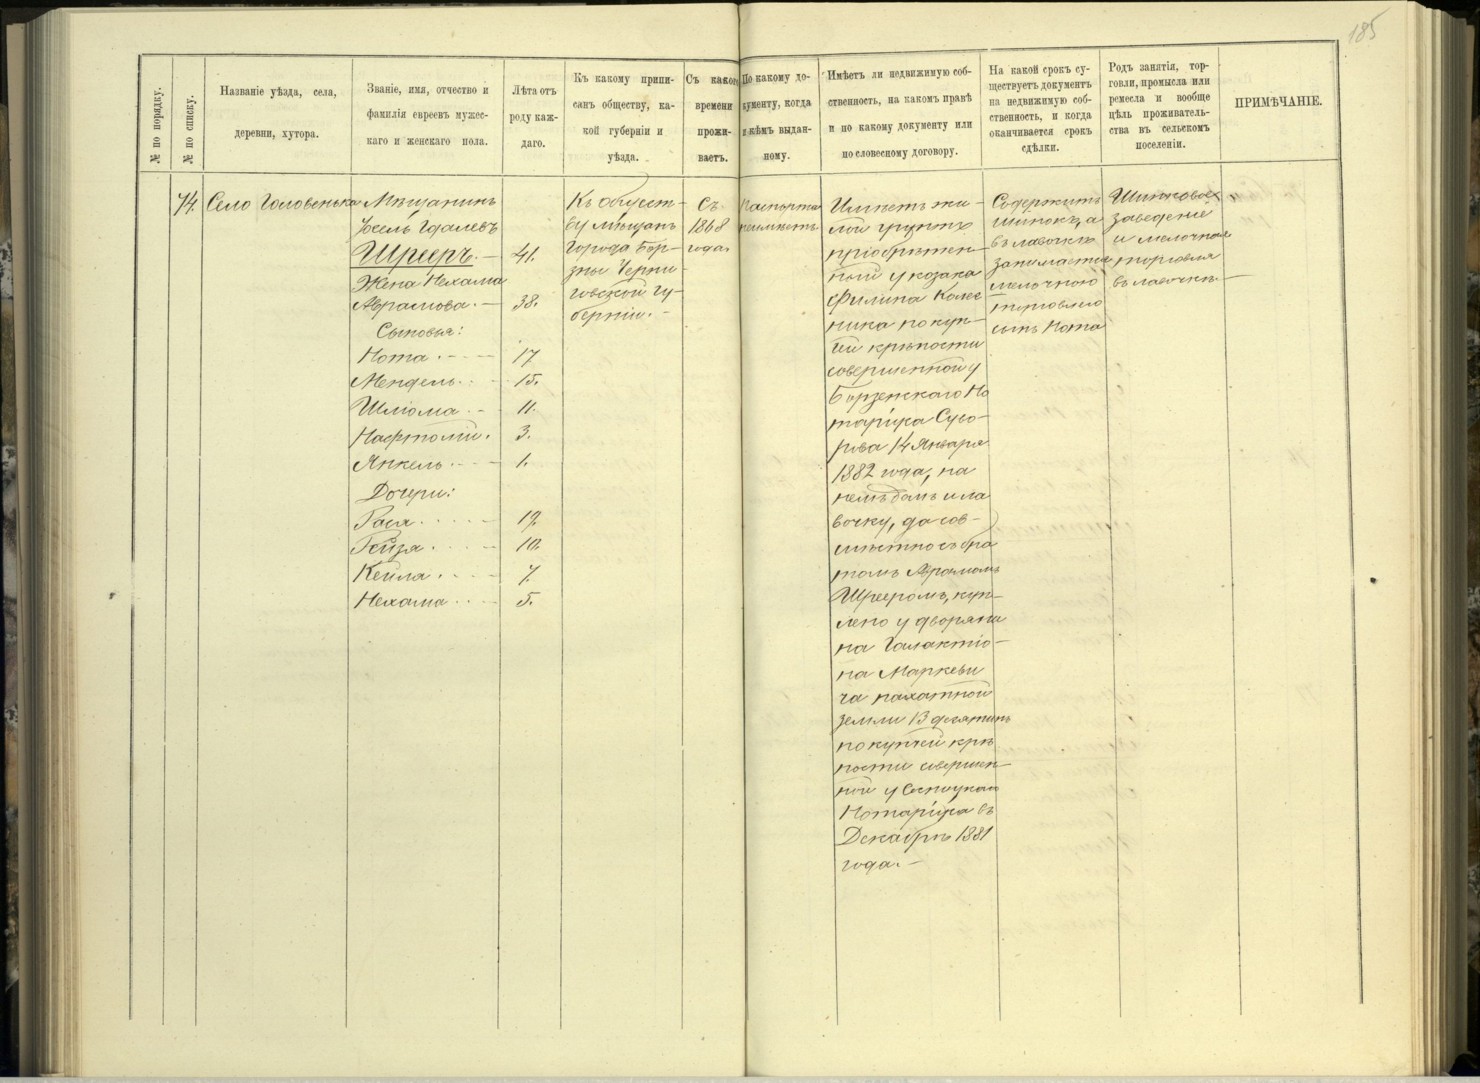 185
№ по порядку.
№ по списку.
Названіе уѣзда, села,
деревни, хутора.
Званіе, имя, отчество и
фамилія евреевъ мужес-
каго и женскаго пола.
Лѣта отъ
роду каж-
даго.
Къ какому припи-
санъ обществу, ка-
кой губерніи и
уѣзда.
Съ какого
времени
прожи-
ваетъ.
По какому до-
кументу, когда
и кѣмъ выдан-
ному.
Имѣетъ ли недвижимую соб-
ственность, на какомъ правѣ
и по какому документу или
по словесному договору.
На какой срокъ су-
ществуетъ документъ
на недвижимую соб-
ственность, и когда
оканчивается срокъ
сдѣлки.
Родъ занятія, тор-
говли, промысла или
ремесла и вообще
цѣль проживатель-
ства въ сельскомъ
поселеніи.
ПРИМѢЧАНІЕ.
74.
Село Головенька
Мѣщанинъ
Іосель Гдалевъ
Шрееръ. — 41.
Жена Нехама
Аврамова. — 38.
Сыновья:
Нота. — 17
Мендель. 15.
Шліома. — 11.
Нафтолій. 3.
Янкель. — 1.
Дочери:
Рася — 19.
Гейзя — 10.
Кейла. — 7.
Нехама — 5.
Къ общест-
ву мѣщанъ
города Бор-
зны Черни-
говской гу-
берніи. —
Съ
1868
года.
Паспорта
неимѣетъ
Имѣетъ жи-
лой грунтъ
пріобрѣтен-
ный у козака
Филипа Колес
ника по куп-
чій крѣпости
совершенной у
Борзенскаго Но
таріуса Суво-
рова 14 Января
1882 года, на
немъ домъ и ла
вочку, да сов-
мѣстно съ бра
томъ Аврамомъ
Шрееромъ, куп-
лено у дворяни
на Галактіо-
на Маркеви
ча пахатной
земли 13 десятинъ
по купчей крѣ
пости совершен-
ной у Сосницкаго
Нотаріуса въ
Декабрѣ 1881
года. —
Содержитъ
шинокъ, а
въ лавочкѣ
занимается
мелочною
торговлею
сынъ Нота
Шинковое
заведеніе
и мелочная
торговля
въ лавочкѣ. —